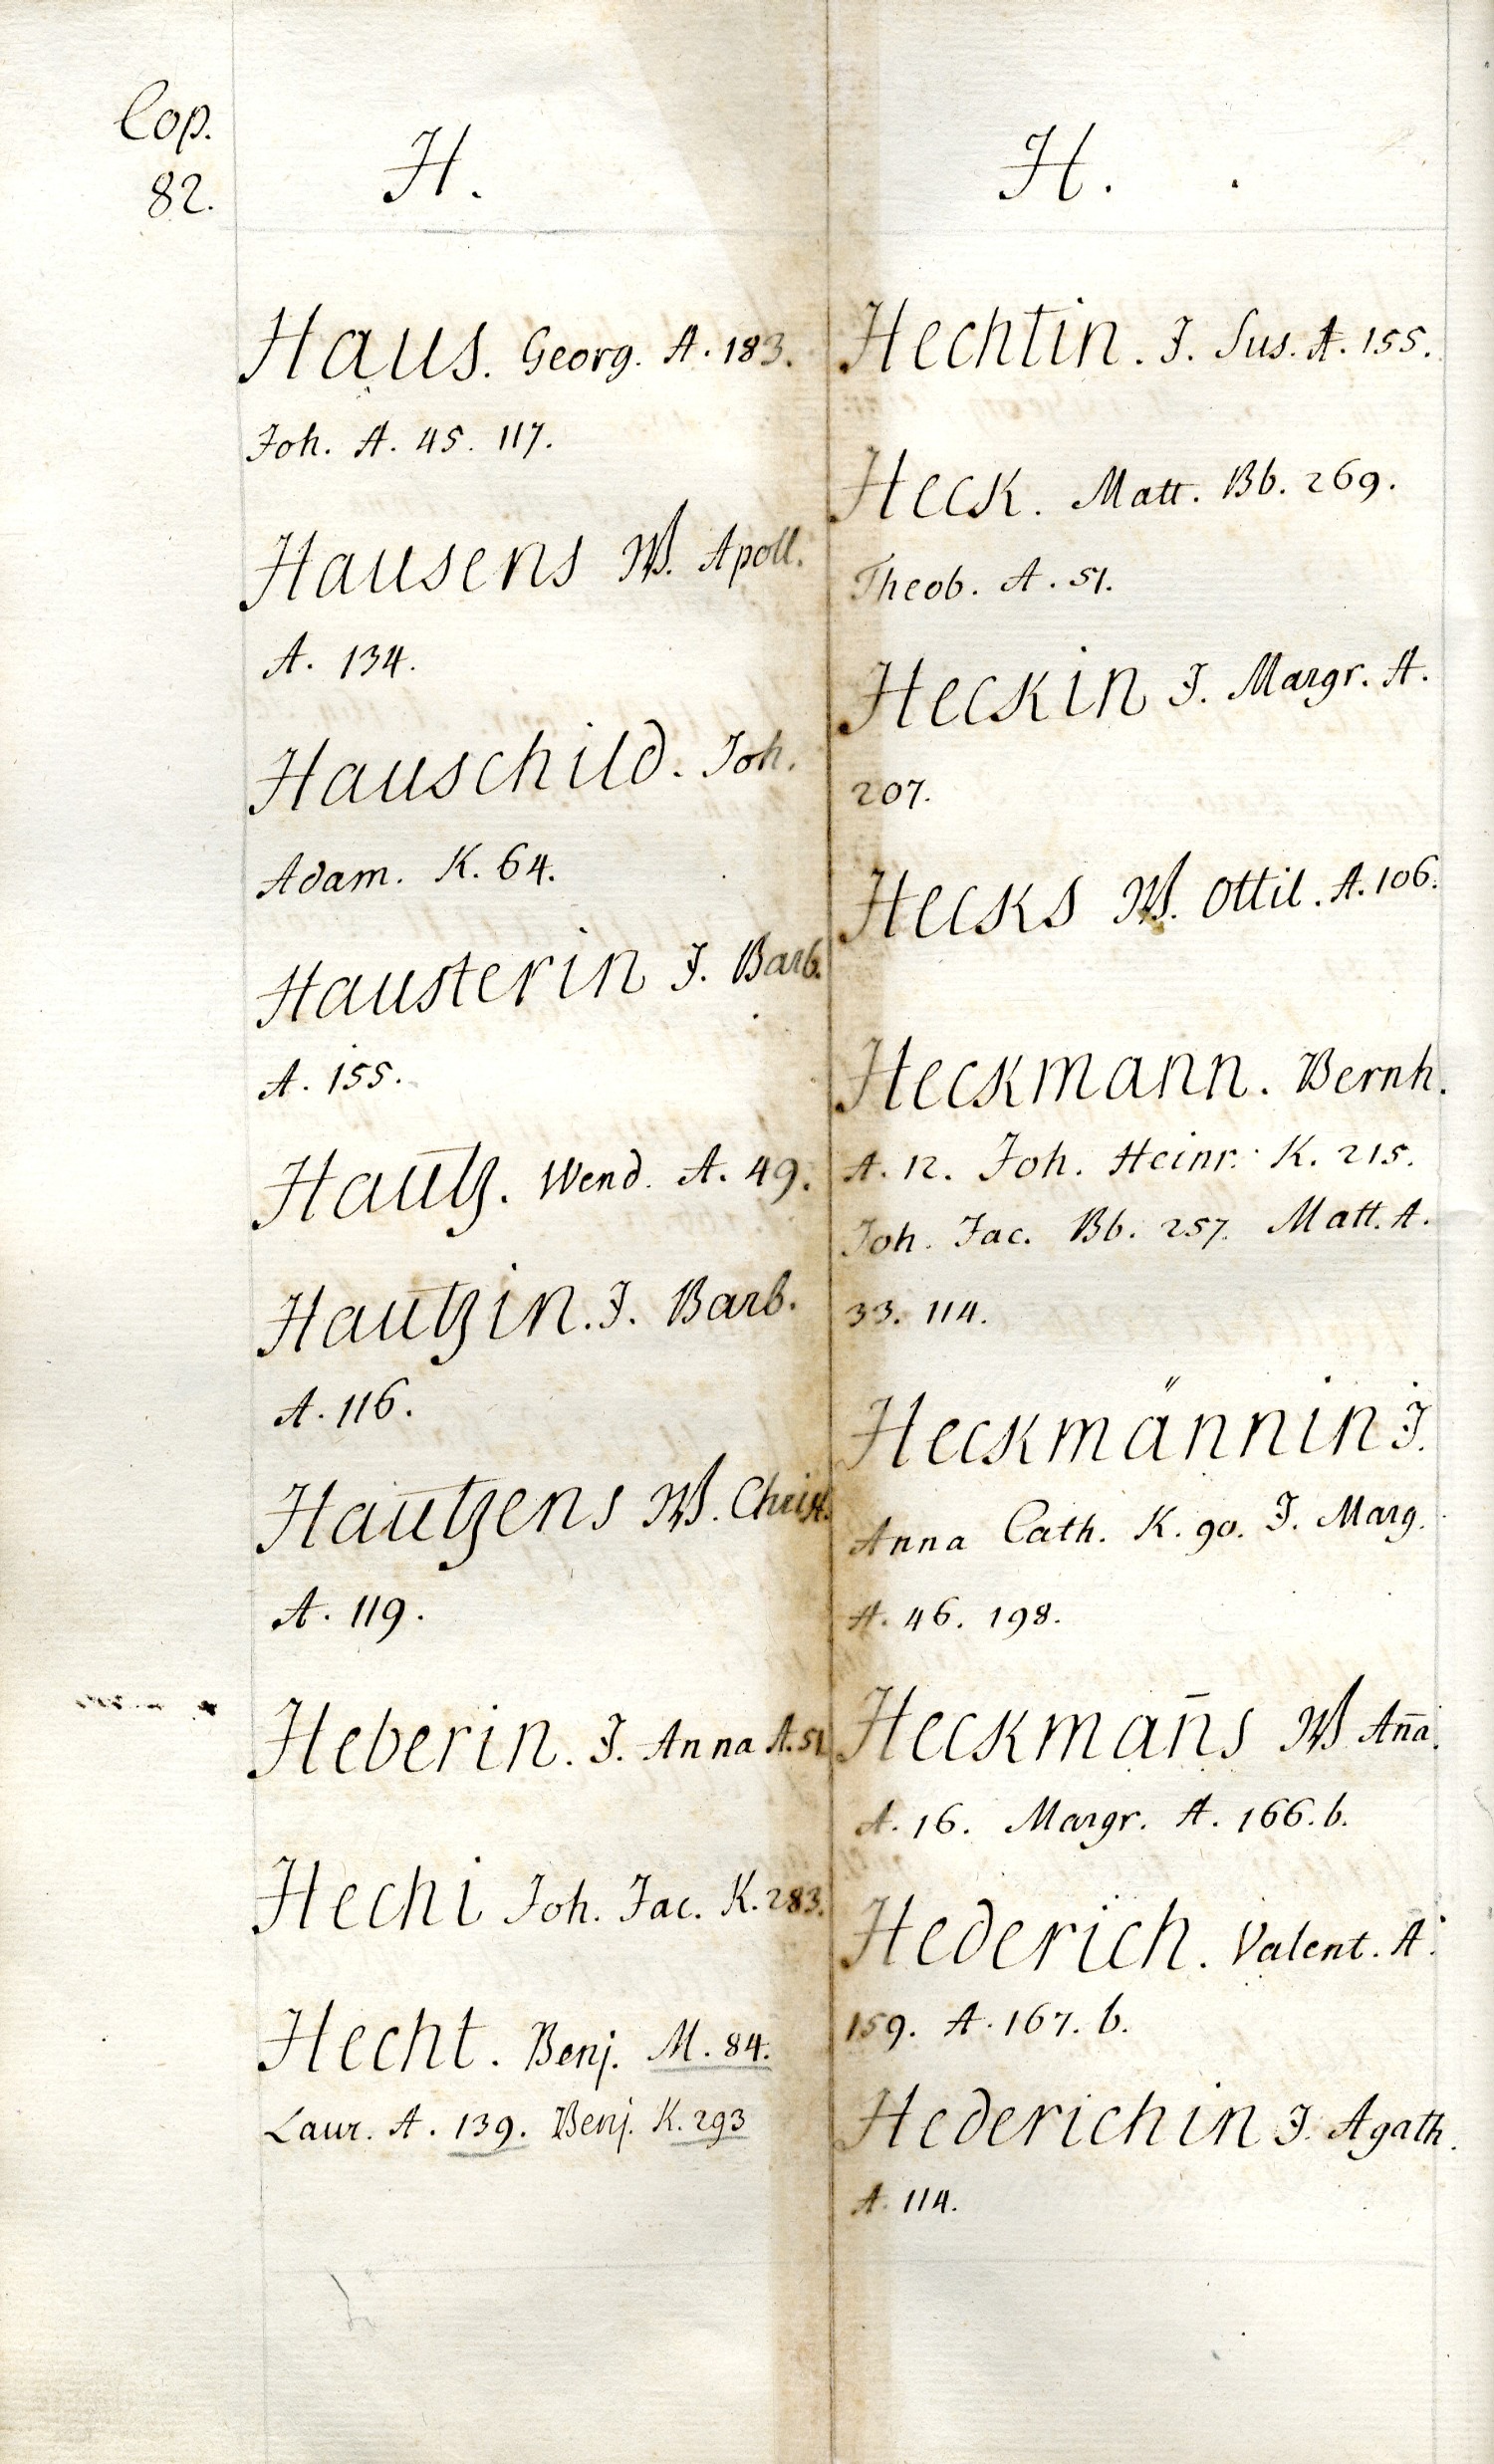 Cop.
82.
H.
Haus. Georg. A. 183.
Joh. A. 45. 117.
Hausens W. Apoll.
A. 134.
Hauschild. Joh.
Adam. K. 64.
Hausterin J. Barb.
A. 155.
Hautz. Wend. A. 49.
Hautzin. J. Barb.
A. 116.
Hautzens W. Christ.
A. 119.
Heberin. J. Anna A. 51.
Hechi Joh. Jac. K. 283.
Hecht. Benj. M. 84.
Laur. A. 139. Benj. K. 293
H.
Hechtin. J. Sus. A. 155.
Heck. Matt. Bb. 269.
Theob. A. 51.
Heckin J. Margr. A.
207.
Hecks W. Ottil. A. 106.
Heckmann. Bernh.
A. 12. Joh. Heinr. K. 215.
Joh. Jac. Bb. 257. Matt. A.
33. 114.
Heckmännin J.
Anna Cath. K. 90. J. Marg.
A. 46. 198.
Heckman̄s W. An̄a.
A. 16. Margr. A. 166. b.
Hederich. Valent. A.
159. A. 167. b.
Hederichin J. Agath.
A. 114.